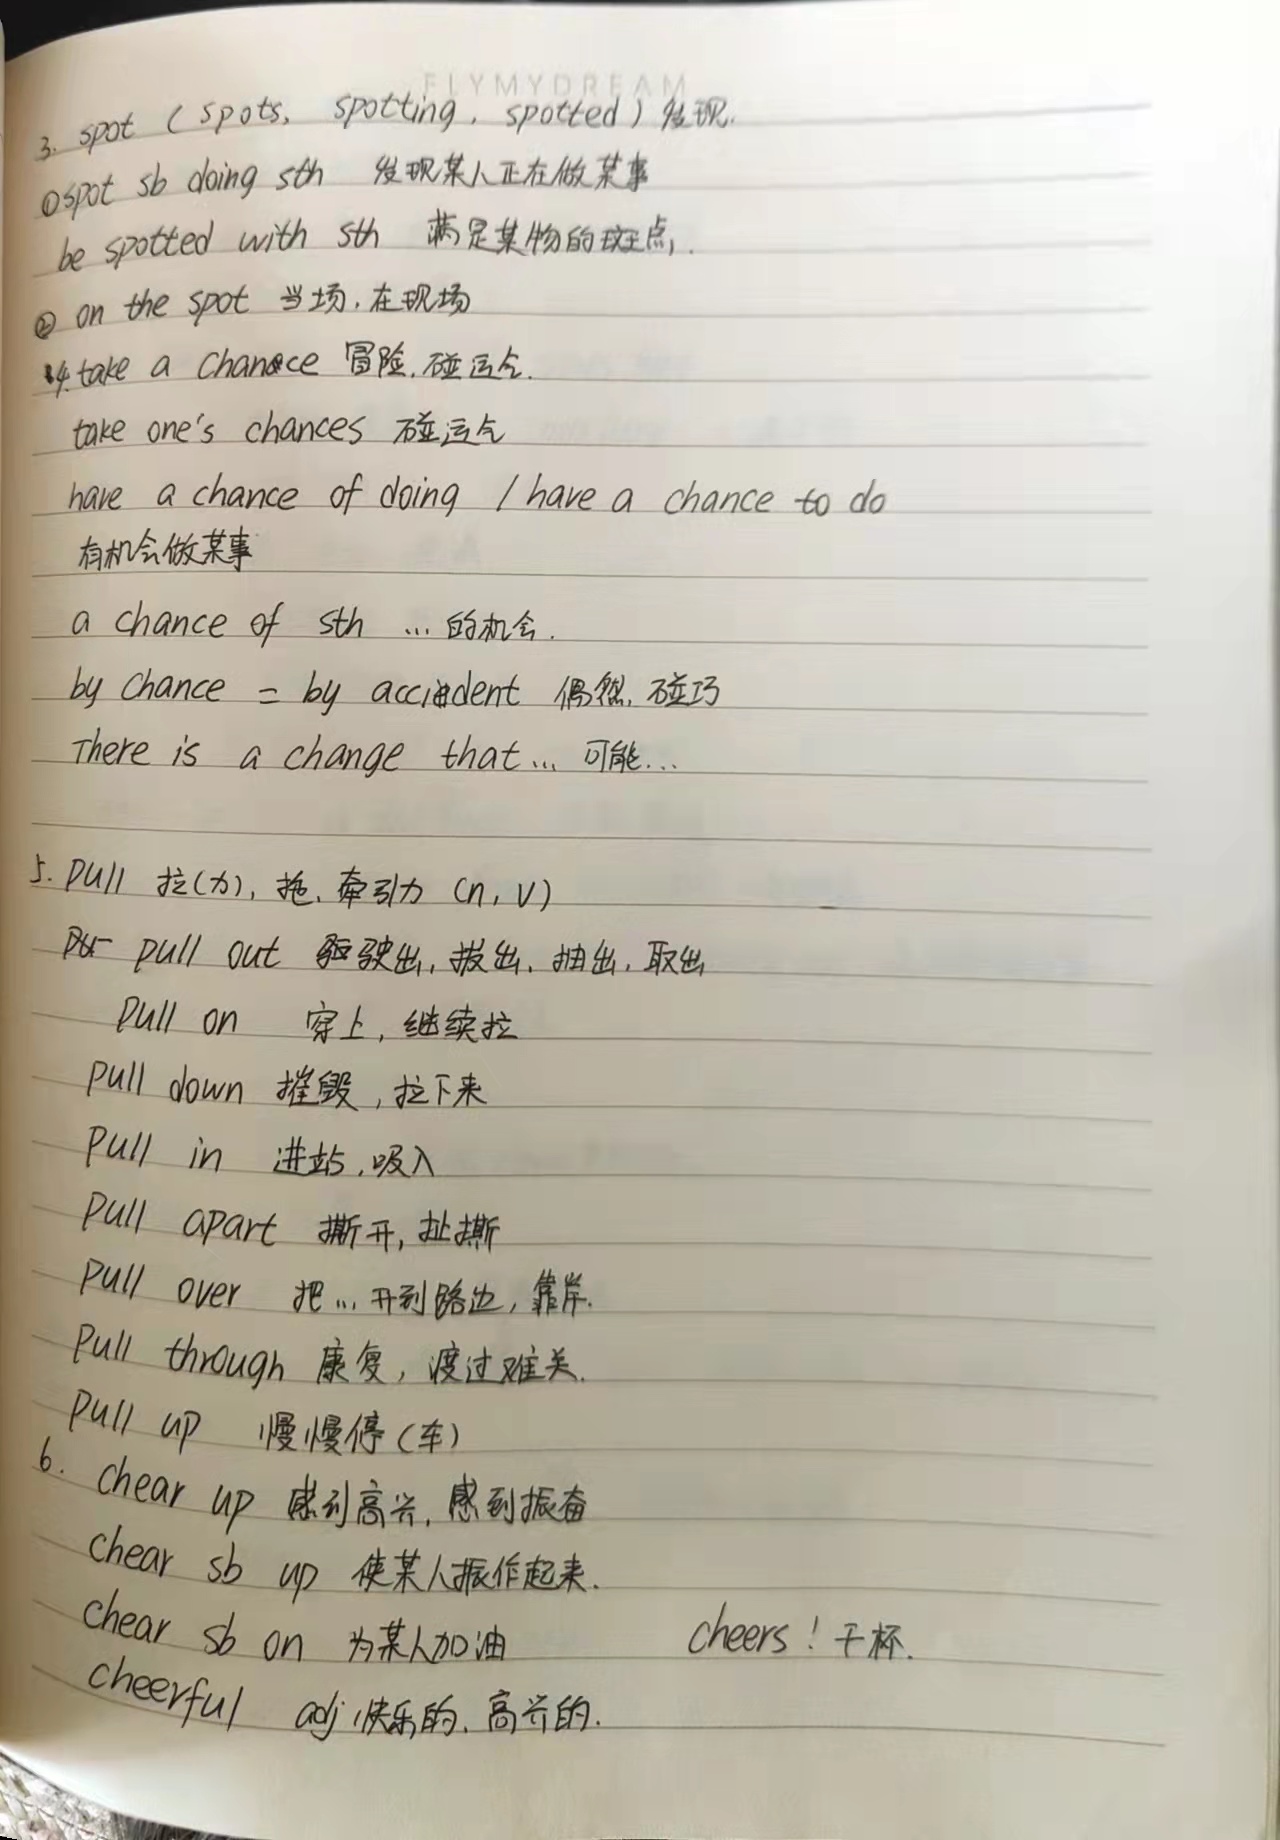 FLYMYDREAM
3. spot ( spots, spotting, spotted ) 发现.
①spot sb doing sth 发现某人正在做某事
be spotted with sth 满是某物的斑点.
② on the spot 当场, 在现场
4. take a chance 冒险, 碰运气.
take one's chances 碰运气
have a chance of doing / have a chance to do
有机会做某事
a chance of sth ... 的机会.
by chance = by accident 偶然, 碰巧
There is a change that ... 可能...
5. Pull 拉(力), 拖, 牵引力 (n, v)
pull out 驱驶出, 拔出, 抽出, 取出
Pull on 穿上, 继续拉
Pull down 摧毁, 拉下来
Pull in 进站, 吸入
Pull apart 撕开, 扯撕
Pull over 把... 开到路边, 靠岸.
Pull through 康复, 渡过难关.
Pull up 慢慢停(车)
6. chear up 感到高兴, 感到振奋
chear sb up 使某人振作起来.
chear sb on 为某人加油 cheers! 干杯.
cheerful adj 快乐的, 高兴的.